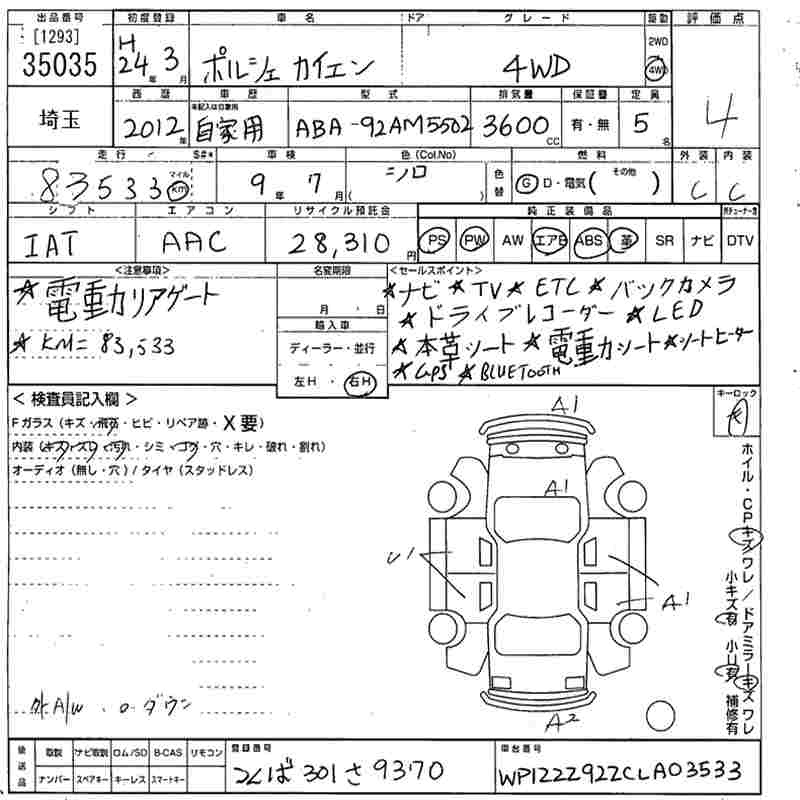 出品番号 初度登録 車名 ドア グレード 駆動 評価点
[1293] 35035 H 24年 3月 ポルシェ カイエン 4WD 2WD 4WD 4
埼玉 西暦 車歴 型式 排気量 保証書 定員
未記入は自家用
2012年 自家用 ABA-92AM5502 3600cc 有・無 5名
走行 S#* 車検 色(Col.No) 色替 燃料 外装 内装
83533 マイル km 9年 7月 シロ ( ) G D・電気( その他 ) C C
シフト エアコン リサイクル預託金 純正装備品
IAT AAC 28,310円 PS PW AW エアB ABS 革 SR ナビ DTV
<注意事項> 名変期限 <セールスポイント>
☆電動リアゲート 月・日 ☆ナビ ☆TV ☆ETC ☆バックカメラ
輸入車 ☆ドライブレコーダー ☆LED
☆KM=83,533 ディーラー・並行 ☆本革シート ☆電動シート ☆シートヒーター
左H・右H ☆GPS ☆BLUETOOTH
<検査員記入欄> キーロック
Fガラス(キズ・飛石・ヒビ・リペア跡・X要)
内装(キズ・スレ・汚れ・シミ・コゲ・穴・キレ・破れ・割れ)
オーディオ(無し・穴)/タイヤ(スタッドレス)
A1
A1
U1
A1
A2
ホイル・CPキズワレ/ドアミラーキズワレ
小キズ有 小U有 補修有
外A/W ・ o-ダウン
後送品 取説 ナビ取説 ロム/SD B-CAS リモコン 登録番号 車台番号
ナンバー スペアキー キーレス スマートキー つくば 301 さ 9370 WP1ZZZ92ZCLA03533